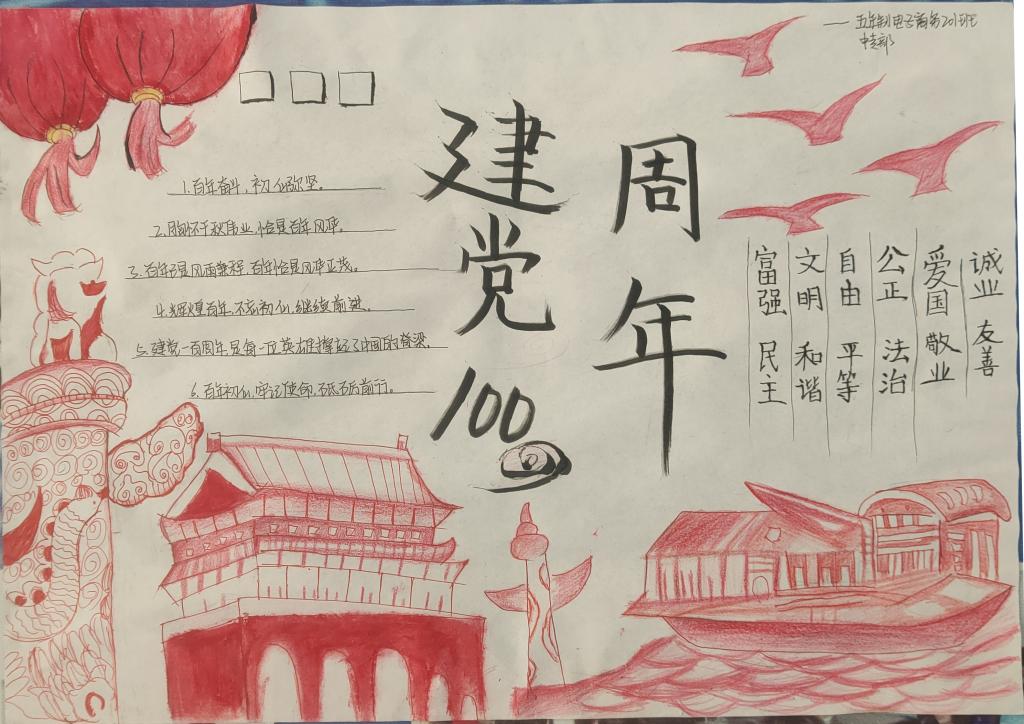 一五年制电子商务201班
中支部
□□□
建党100
周年
1.百年奋斗,初心弥坚。
2.胸怀千秋伟业,恰是百年风华。
3.百年强风雨兼程,百年恰是风华正茂。
4.辉煌百年,不忘初心,继续前进。
5.建党一百周年是每一位英雄撑起了中国的脊梁。
6.百年初心,牢记使命,砥砺前行。
富强 民主
文明 和谐
自由 平等
公正 法治
爱国 敬业
诚业 友善